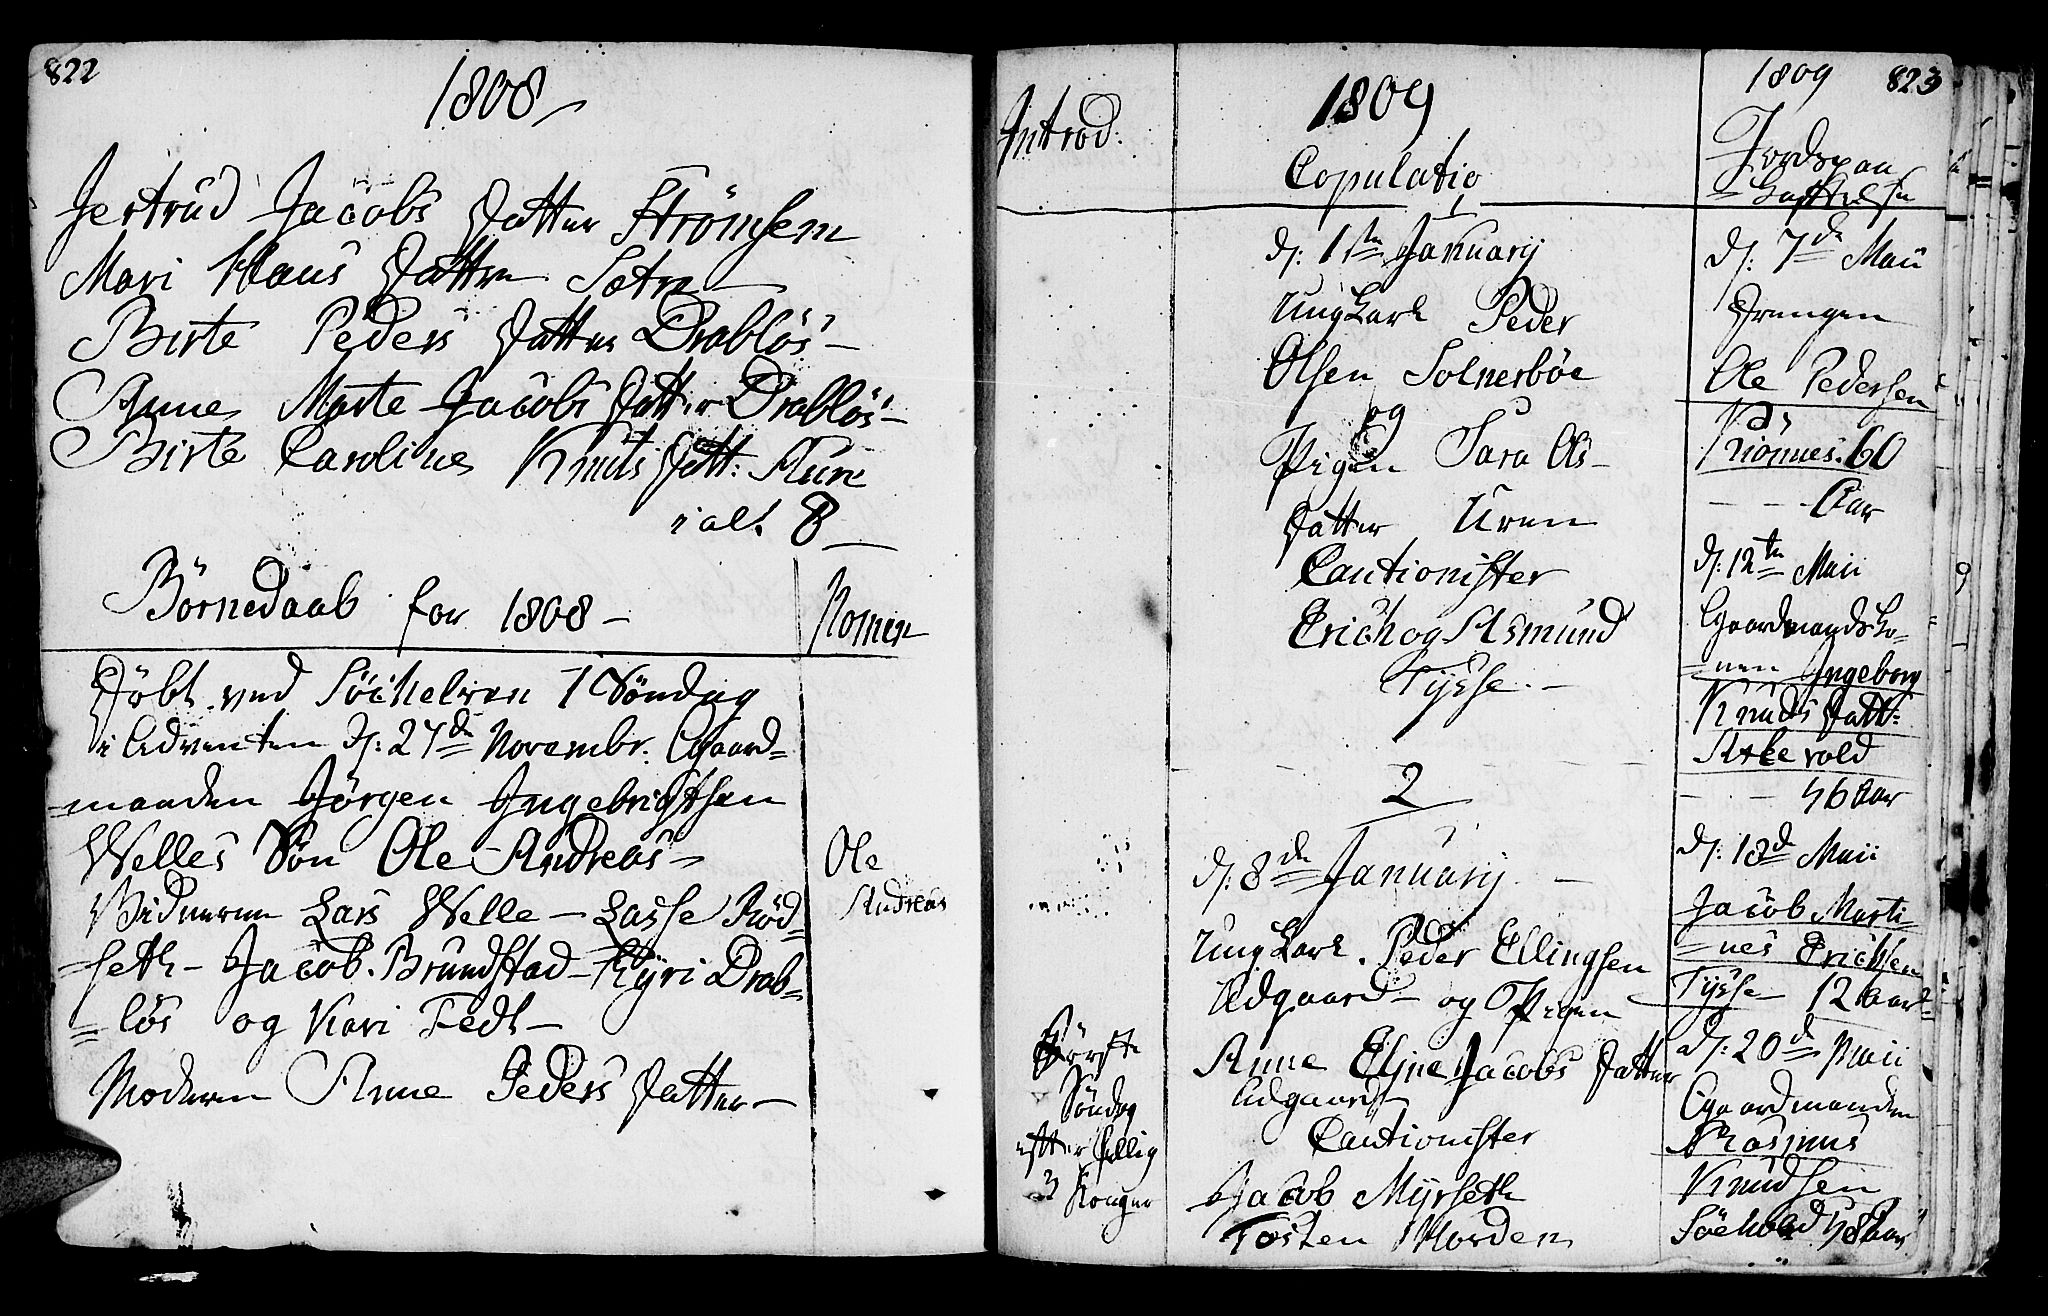 822
1808
Jertrud Jacobs Datter Strömsem
Mari Klaus Datter Sætre
Birte Peders Datter Drabløs
Anne Marte Jacobs Datter Drabløs
Birte Caroline Knuts Datt: Aure
i alt 8
Börnedaab for 1808
Nomen
Döbt ved Söehelven 1 Söndag
i Adventen d: 27de Novembr. Gaard=
=manden Jörgen Ingebrigtsen
Welles Sön Ole Andreas
Ole
Andreas
Vidneren Lars Welle - Lasse Röd=
=seth - Jacob Brundstad - Kyri Drab=
=løs og Kari Fedt
Moderen Anne Peders Datter
Introd:
Förste
Söndag
efter hellig
3 Konger
1809
Copulatio
1
d: 1ste January
Ung Karl Peder
Olsen Solnerböe
og
Pigen Sara Ols
Datter Uren
Cautionister
Erich og Asmund
Tysse.
2
d: 8de January
Ung Karl Peder Ellingsen
Ødgaard og Pigen
Anne Eline Jacobs Datter
Ødgaard
Cautionister
Jacob Myrseth
Tosten Morden
1809 823
Jordspaa
=kastelse
d: 7de Maii
Drengen
Ole Pedersen
60
Aar
d: 12te Maii
Gaardmands Ko=
=nen Ingeborg
Knuds Datt=
vold
56 Aar
d: 18de Maii
Jacob Marti=
=nes Erichsen
Tysse 12 Aar
d: 20de Maii
Gaardmanden
Rasmus
Knudsen
Söeholdt 58 Aar